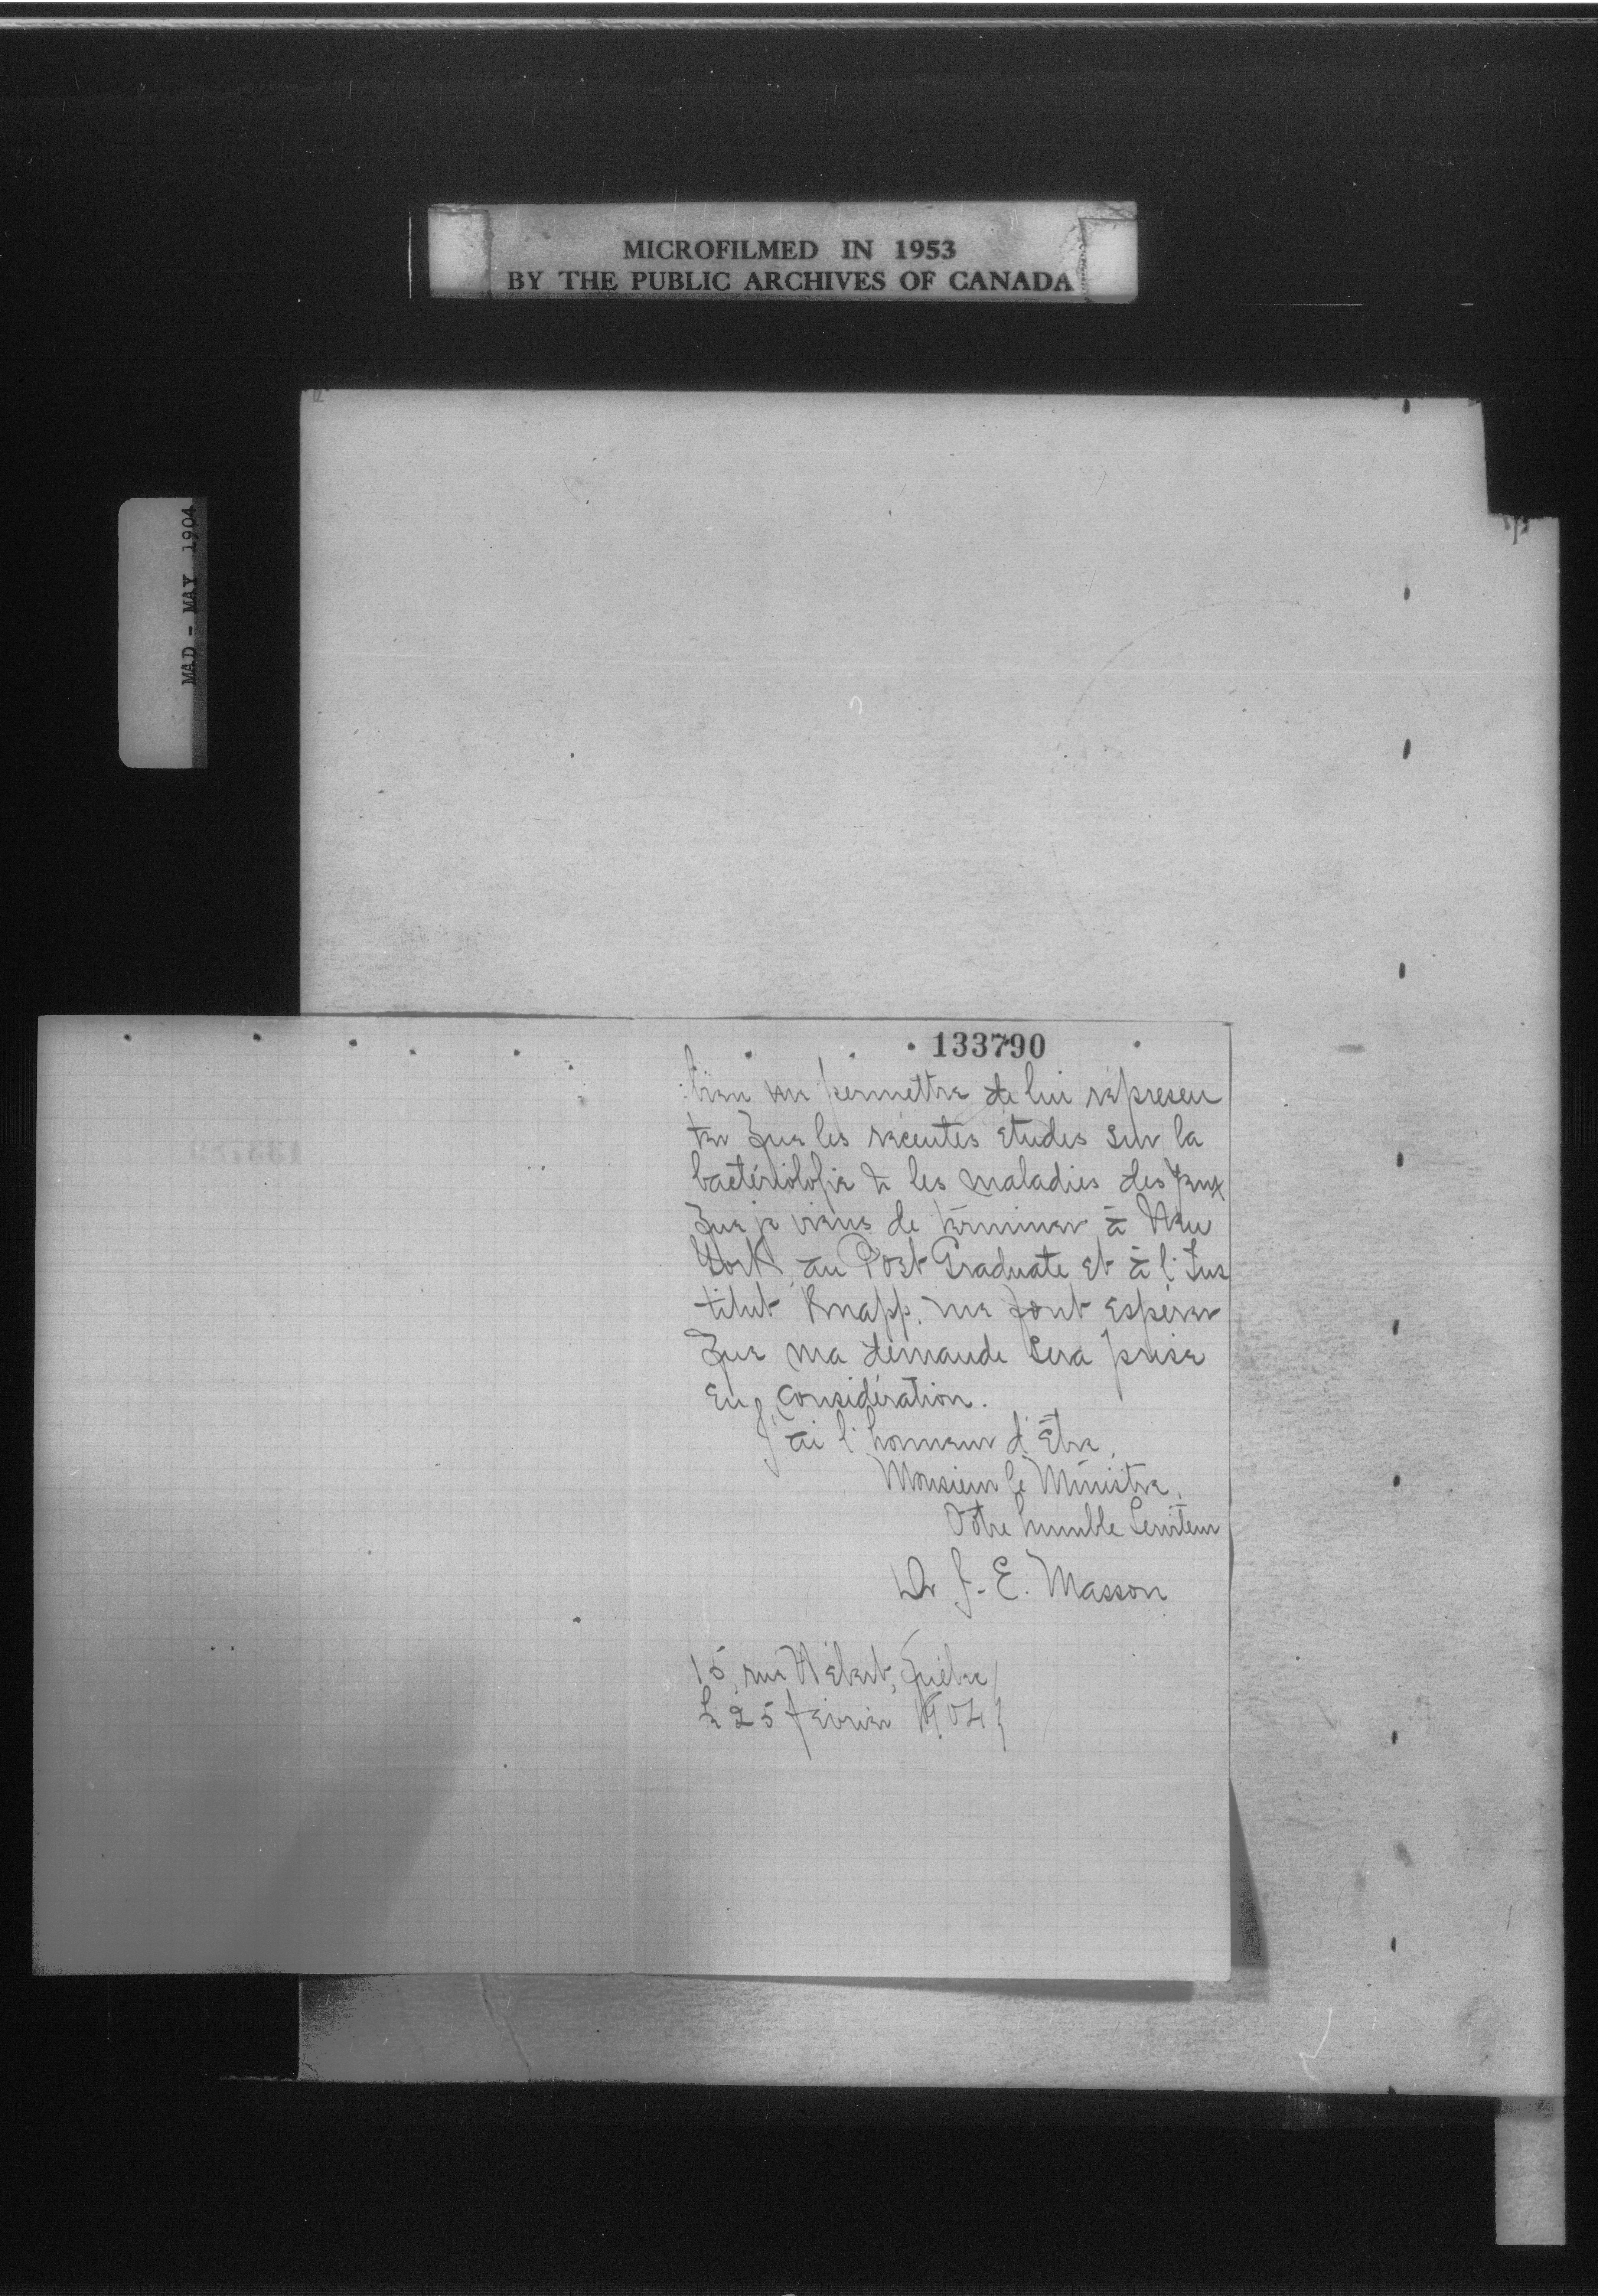 MICROFILMED IN 1953
BY THE PUBLIC ARCHIVES OF CANADA
MAD - MAY 1904
133790
bien me permettre de lui représen
ter que les récentes études sur la
bactériologie & les maladies des yeux
que je viens de terminer à New
York, au Post Graduate et à l'Ins
titut Knapp, me font espérer
que ma demande sera prise
en considération.
J'ai l'honneur d'être,
Monsieur le Ministre,
Votre humble Serviteur
Dr J.-E. Masson
15, rue Hébert, Québec
Le 25 février 1904